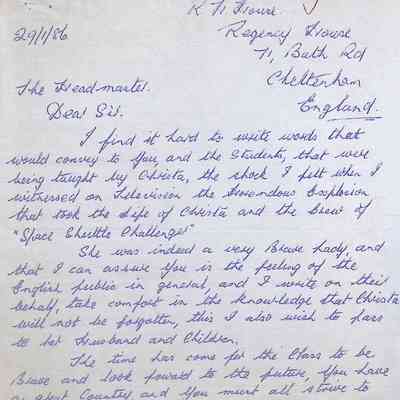 K H House.
29/1/86
Regency House
71, Bath Rd
Cheltenham
England.
The Headmaster.
Dear Sir.
I find it hard to write words that
would convey to you, and the Students, that were
being taught by Christa, the shock I felt when I
witnessed on Television the Horrendous Explosion
that took the Life of Christa and the Crew of
"Space Shuttle Challenger"
She was indeed a very Brave Lady, and
that I can assure you is the feeling of the
English public in general, and I write on their
behalf, take comfort in the knowledge that Christa
will not be forgotten, this I also wish to pass
to her Husband and Children.
The time has come for the Class to be
Brave and look foward to the future, you have
a great Country and you must all strive to